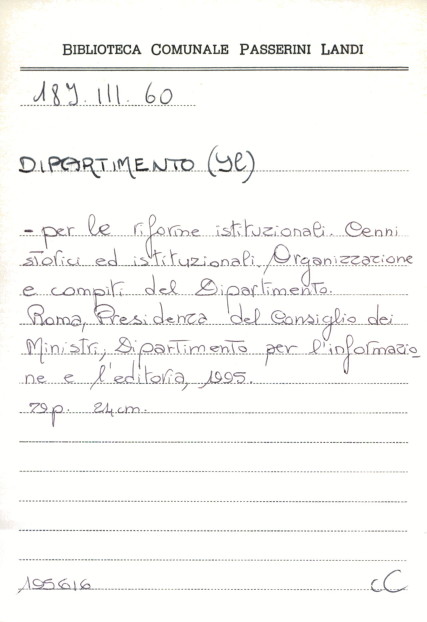 BIBLIOTECA COMUNALE PASSERINI LANDI
189. III. 60
DIPARTIMENTO (Il)
- per le riforme istituzionali. Cenni
storici ed istituzionali. Organizzazione
e compiti del Dipartimento.
Roma, Presidenza del Consiglio dei
Ministri, Dipartimento per l'informazio
ne e l'editoria, 1995.
79 p. 24 cm.
195616
cC